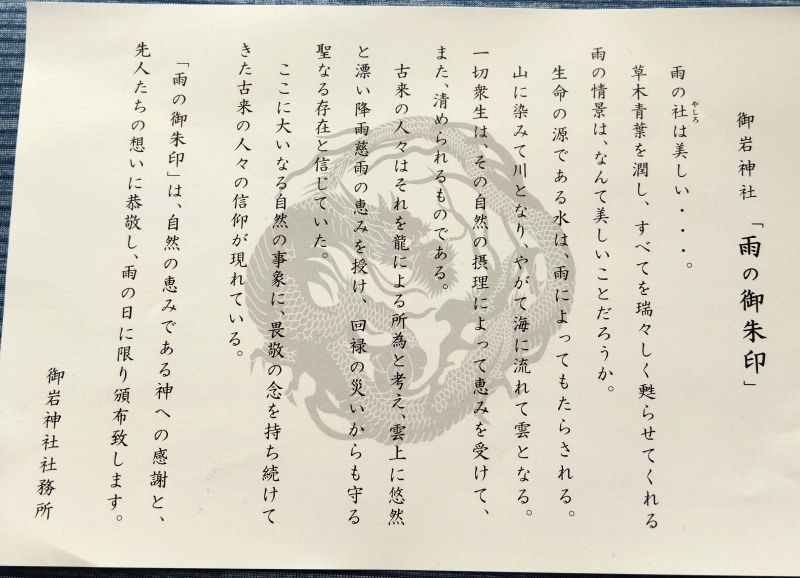 御岩神社 「雨の御朱印」
雨の社は美しい・・・。
やしろ
草木青葉を潤し、すべてを瑞々しく甦らせてくれる
雨の情景は、なんて美しいことだろうか。
生命の源である水は、雨によってもたらされる。
山に染みて川となり、やがて海に流れて雲となる。
一切衆生は、その自然の摂理によって恵みを受けて、
また、清められるものである。
古来の人々はそれを龍による所為と考え、雲上に悠然
と漂い降雨慈雨の恵みを授け、回禄の災いからも守る
聖なる存在と信じていた。
ここに大いなる自然の事象に、畏敬の念を持ち続けて
きた古来の人々の信仰が現れている。
「雨の御朱印」は、自然の恵みである神への感謝と、
先人たちの想いに恭敬し、雨の日に限り頒布致します。
御岩神社社務所